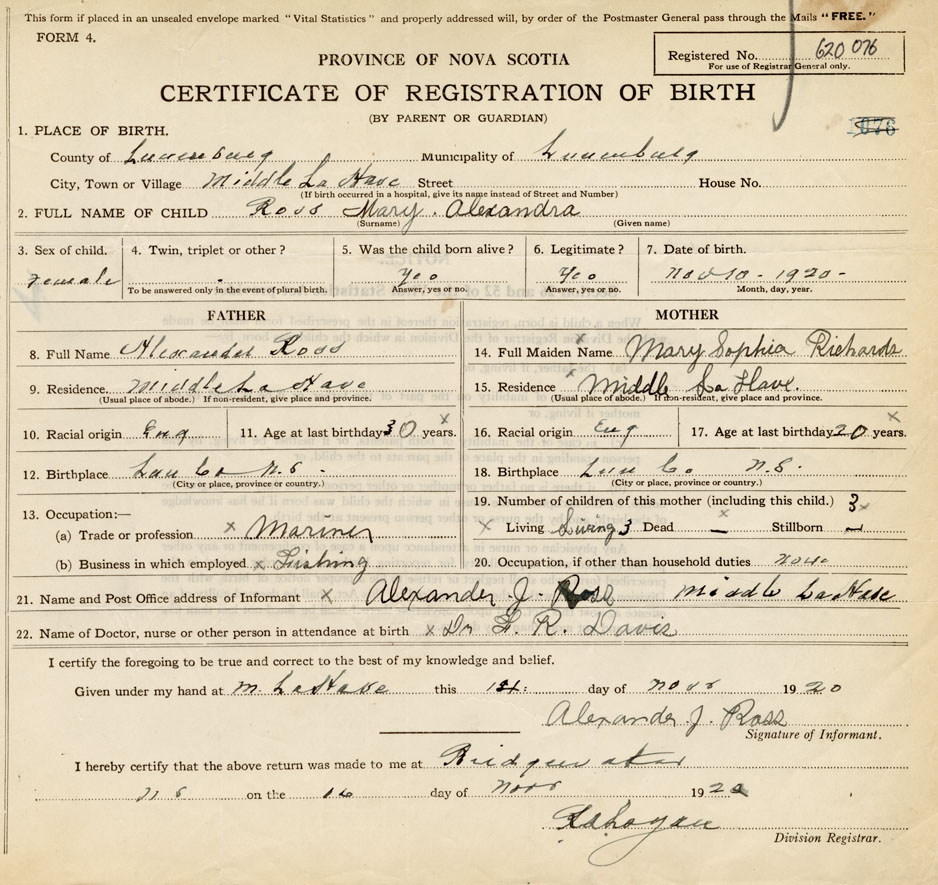 This form if placed in an unsealed envelope marked "Vital Statistics" and properly addressed will, by order of the Postmaster General pass through the Mails "FREE."
FORM 4.
Registered No. 620 076
For use of Registrar General only.
PROVINCE OF NOVA SCOTIA
CERTIFICATE OF REGISTRATION OF BIRTH
(BY PARENT OR GUARDIAN)
1076
1. PLACE OF BIRTH.
County of Lunenburg Municipality of Lunenburg
City, Town or Village Middle La Have Street House No.
(If birth occurred in a hospital, give its name instead of Street and Number)
2. FULL NAME OF CHILD Ross Mary Alexandra
(Surname) (Given name)
3. Sex of child. 4. Twin, triplet or other? 5. Was the child born alive? 6. Legitimate? 7. Date of birth.
Female - Yes Yes Nov 10 - 1920 -
To be answered only in the event of plural birth. Answer, yes or no. Answer, yes or no. Month, day, year.
FATHER MOTHER
8. Full Name Alexander Ross 14. Full Maiden Name Mary Sophia Richards
9. Residence Middle La Have 15. Residence Middle La Have.
(Usual place of abode.) If non-resident, give place and province. (Usual place of abode.) If non-resident, give place and province.
10. Racial origin Eng 11. Age at last birthday 30 years. 16. Racial origin Eng 17. Age at last birthday 20 years.
12. Birthplace Lun Co N.S. 18. Birthplace Lun Co. N.S.
(City or place, province or country.) (City or place, province or country.)
13. Occupation:— 19. Number of children of this mother (including this child.) 3
(a) Trade or profession x Mariner x Living Living 3 Dead — Stillborn —
(b) Business in which employed x Fishing 20. Occupation, if other than household duties none
21. Name and Post Office address of Informant x Alexander J. Ross Middle LaHave
22. Name of Doctor, nurse or other person in attendance at birth x Dr F. R. Davis
I certify the foregoing to be true and correct to the best of my knowledge and belief.
Given under my hand at M. LaHave this day of Novr 1920
Alexander J. Ross
Signature of Informant.
I hereby certify that the above return was made to me at Bridgewater
N S on the 16 day of Novr 1920
Division Registrar.